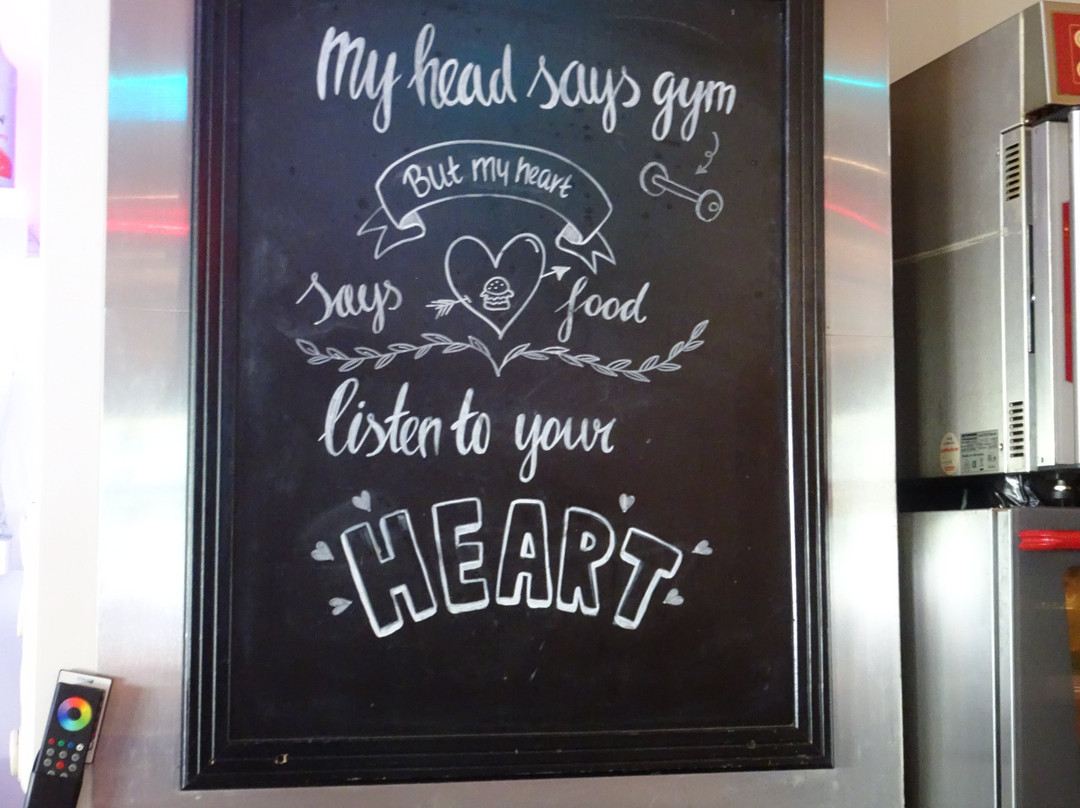 My head says gym
But my heart
says food
listen to your
HEART